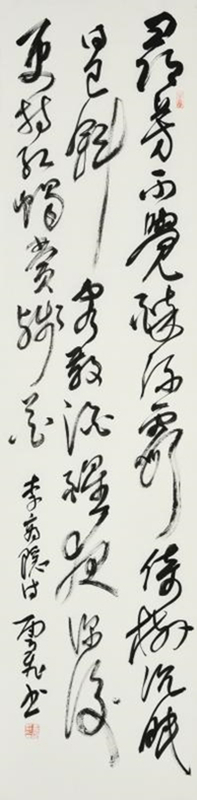 尋芳不覺醉流霞倚樹沉眠
日已斜客散酒醒夜深後
更持紅燭賞殘花李商隱詩書